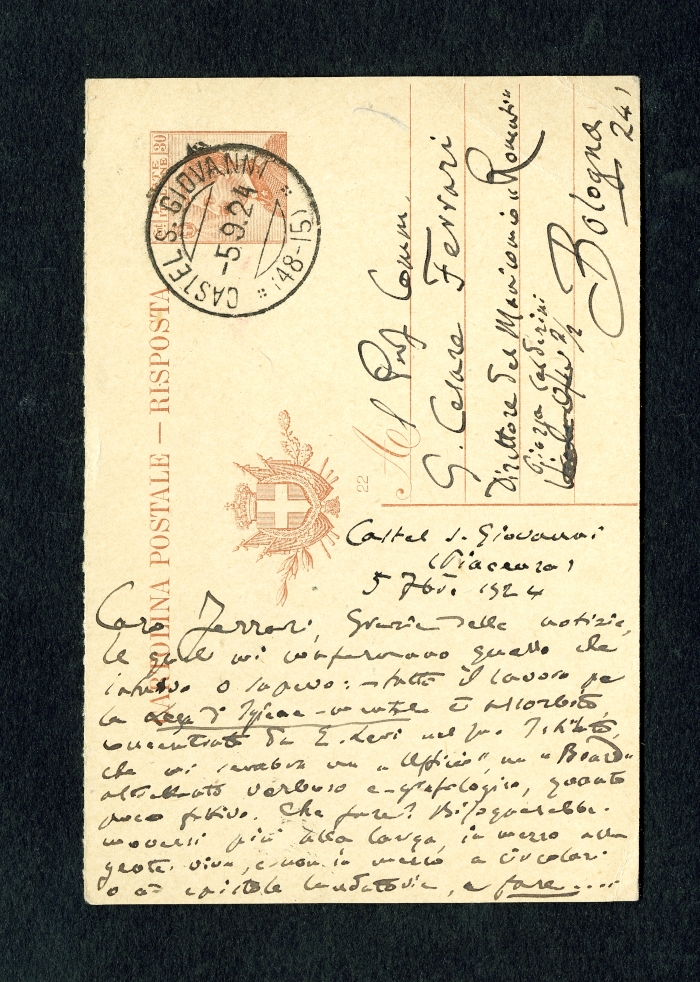 CARTOLINA POSTALE — RISPOSTA
CENT. 30
CASTEL S. GIOVANNI
-5.9.24
(48-15)
22
Al Prof Comm.
G. Cesare Ferrari
Direttore del Manicomio "Roncati"
Piazza Calderini
2/2
Bologna
24)
Castel S. Giovanni
(Piacenza)
5 7bre 1924
Caro Ferrari, Grazie delle notizie,
le quali mi confermano quello che
intuivo o sapevo: - tutto il lavoro per
la Lega d'Igiene mentale è assorbito,
concentrato da E. Levi nel suo Istituto,
che mi sembra un "Ufficio", un "Board"
altrettanto verboso e grafologico, quanto
poco fattivo. Che fare? Bisognerebbe
muoversi più alla larga, in mezzo alla
gente viva, e non in mezzo a circolari
o a epistole laudatorie, e fare.....